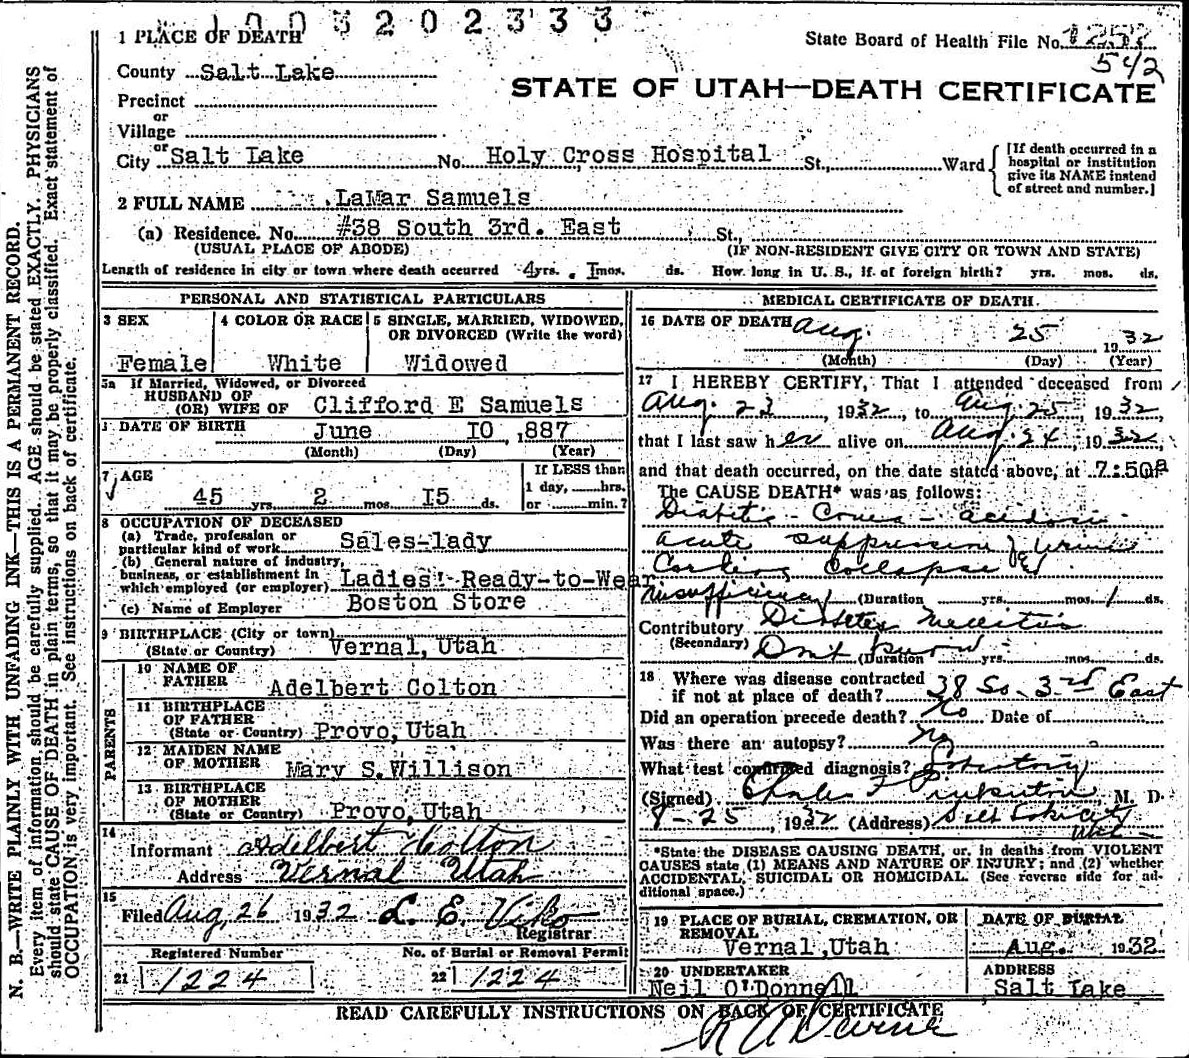 1003202333
1 PLACE OF DEATH
State Board of Health File No. 1257
542
County Salt Lake
STATE OF UTAH—DEATH CERTIFICATE
Precinct
or
Village
or
City Salt Lake No. Holy Cross Hospital St., Ward
[If death occurred in a hospital or institution give its NAME instead of street and number.]
2 FULL NAME LaMar Samuels
(a) Residence. No. #38 South 3rd. East St.,
(USUAL PLACE OF ABODE) (IF NON-RESIDENT GIVE CITY OR TOWN AND STATE)
Length of residence in city or town where death occurred 4 yrs. I mos. ds. How long in U. S., if of foreign birth? yrs. mos. ds.
PERSONAL AND STATISTICAL PARTICULARS
3 SEX
Female
4 COLOR OR RACE
White
5 SINGLE, MARRIED, WIDOWED, OR DIVORCED (Write the word)
Widowed
5a If Married, Widowed, or Divorced
HUSBAND OF
(OR) WIFE OF Clifford E Samuels
DATE OF BIRTH June IO, 1887
(Month) (Day) (Year)
7 AGE
45 yrs. 2 mos. I5 ds.
If LESS than
1 day, hrs.
or min.?
8 OCCUPATION OF DECEASED
(a) Trade, profession or
particular kind of work Sales-lady
(b) General nature of industry,
business, or establishment in
which employed (or employer) Ladies' Ready-to-Wear
(c) Name of Employer Boston Store
9 BIRTHPLACE (City or town)
(State or Country) Vernal, Utah
PARENTS
10 NAME OF
FATHER Adelbert Colton
11 BIRTHPLACE
OF FATHER
(State or Country) Provo, Utah
12 MAIDEN NAME
OF MOTHER Mary S. Willison
13 BIRTHPLACE
OF MOTHER
(State or Country) Provo, Utah
14
Informant Adelbert Colton
Address Vernal Utah
15
Filed Aug 26 1932 L. E. Viko
Registrar
Registered Number No. of Burial or Removal Permit
21 1224 22 1224
MEDICAL CERTIFICATE OF DEATH
16 DATE OF DEATH Aug. 25 1932
(Month) (Day) (Year)
17 I HEREBY CERTIFY, That I attended deceased from
Aug. 23, 1932, to Aug 25, 1932,
that I last saw her alive on Aug. 24, 1932,
and that death occurred, on the date stated above, at 7:50a
The CAUSE DEATH* was as follows:
Diabetic - Coma - acidosis
acute suppression of Urine
Cardiac Collapse
insufficiency (Duration yrs. mos. 1 ds.
Contributory Diabetes Mellitus
(Secondary) Dont know (Duration yrs. mos. ds.
18 Where was disease contracted
if not at place of death? 38 So - 3rd East
Did an operation precede death? No Date of
Was there an autopsy? No
What test confirmed diagnosis?
(Signed) Charles F Pinkerton, M. D.
8-25, 1932 (Address) Salt Lake City
Utah
*State the DISEASE CAUSING DEATH, or, in deaths from VIOLENT
CAUSES state (1) MEANS AND NATURE OF INJURY; and (2) whether
ACCIDENTAL, SUICIDAL OR HOMICIDAL. (See reverse side for additional space.)
19 PLACE OF BURIAL, CREMATION, OR
REMOVAL
Vernal, Utah
DATE OF BURIAL
Aug. 1932
20 UNDERTAKER
Neil O'Donnell
ADDRESS
Salt Lake
READ CAREFULLY INSTRUCTIONS ON BACK OF CERTIFICATE
N. B.—WRITE PLAINLY WITH UNFADING INK—THIS IS A PERMANENT RECORD.
Every item of information should be carefully supplied. AGE should be stated EXACTLY. PHYSICIANS
should state CAUSE OF DEATH in plain terms, so that it may be properly classified. Exact statement of
OCCUPATION is very important. See instructions on back of certificate.